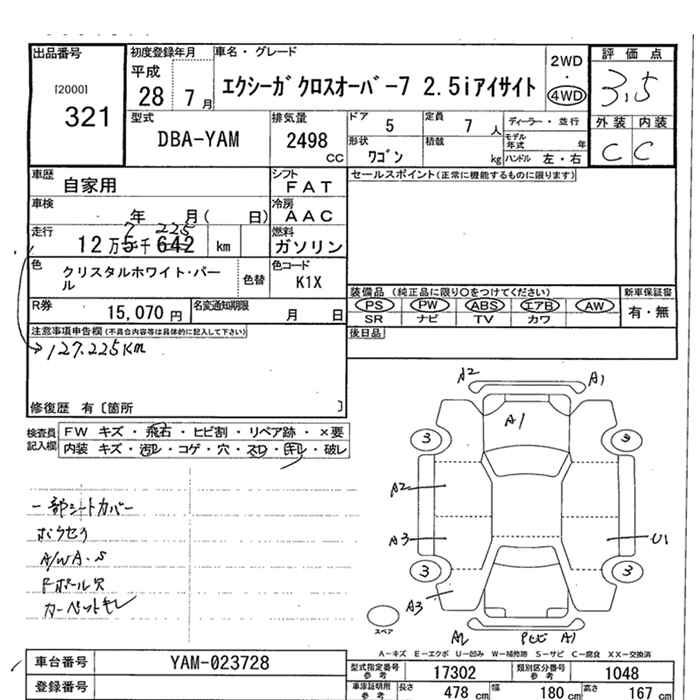 出品番号
[2000]
321
初度登録年月
平成
28 7 月
車名・グレード
エクシーガ クロスオーバー7 2.5iアイサイト
2WD
・
4WD
評価点
3.5
外装 内装
C C
型式
DBA-YAM
排気量
2498
CC
ドア
5
定員
7 人
形状
ワゴン
積載
kg
ディーラー・並行
モデル年式 年
ハンドル 左・右
車歴
自家用
シフト
FAT
車検
年 月( 日)
冷房
AAC
走行
7 225
12万5千642 km
燃料
ガソリン
色
クリスタルホワイト・パール
色替
色コード
K1X
R券
15,070 円
名変通知期限
月 日
セールスポイント(正常に機能するものに限ります)
装備品 (純正品に限り○をつけてください)
PS PW ABS エアB AW
SR ナビ TV カワ
新車保証書
有・無
後日品
注意事項申告欄(不具合内容等は具体的に記入して下さい)
127.225Km
修復歴 有〔箇所 〕
検査員記入欄
FW キズ・飛石・ヒビ割・リペア跡・×要
内装 キズ・汚レ・コゲ・穴・スレ・キレ・破レ
一部シートカバー
ホウセウ
A/W A・S
Fポール穴
カーペットキレ
A2 A1
A1
3 3
A2
A3 U1
3 3
A3
スペア
A2 Pヒビ A1
A-キズ E-エクボ U-凹み W-補修跡 S-サビ C-腐食 XX-交換済
車台番号
YAM-023728
登録番号
型式指定番号参考
17302
類別区分番号参考
1048
車庫証明用参考
長さ 478 cm
幅 180 cm
高さ 167 cm